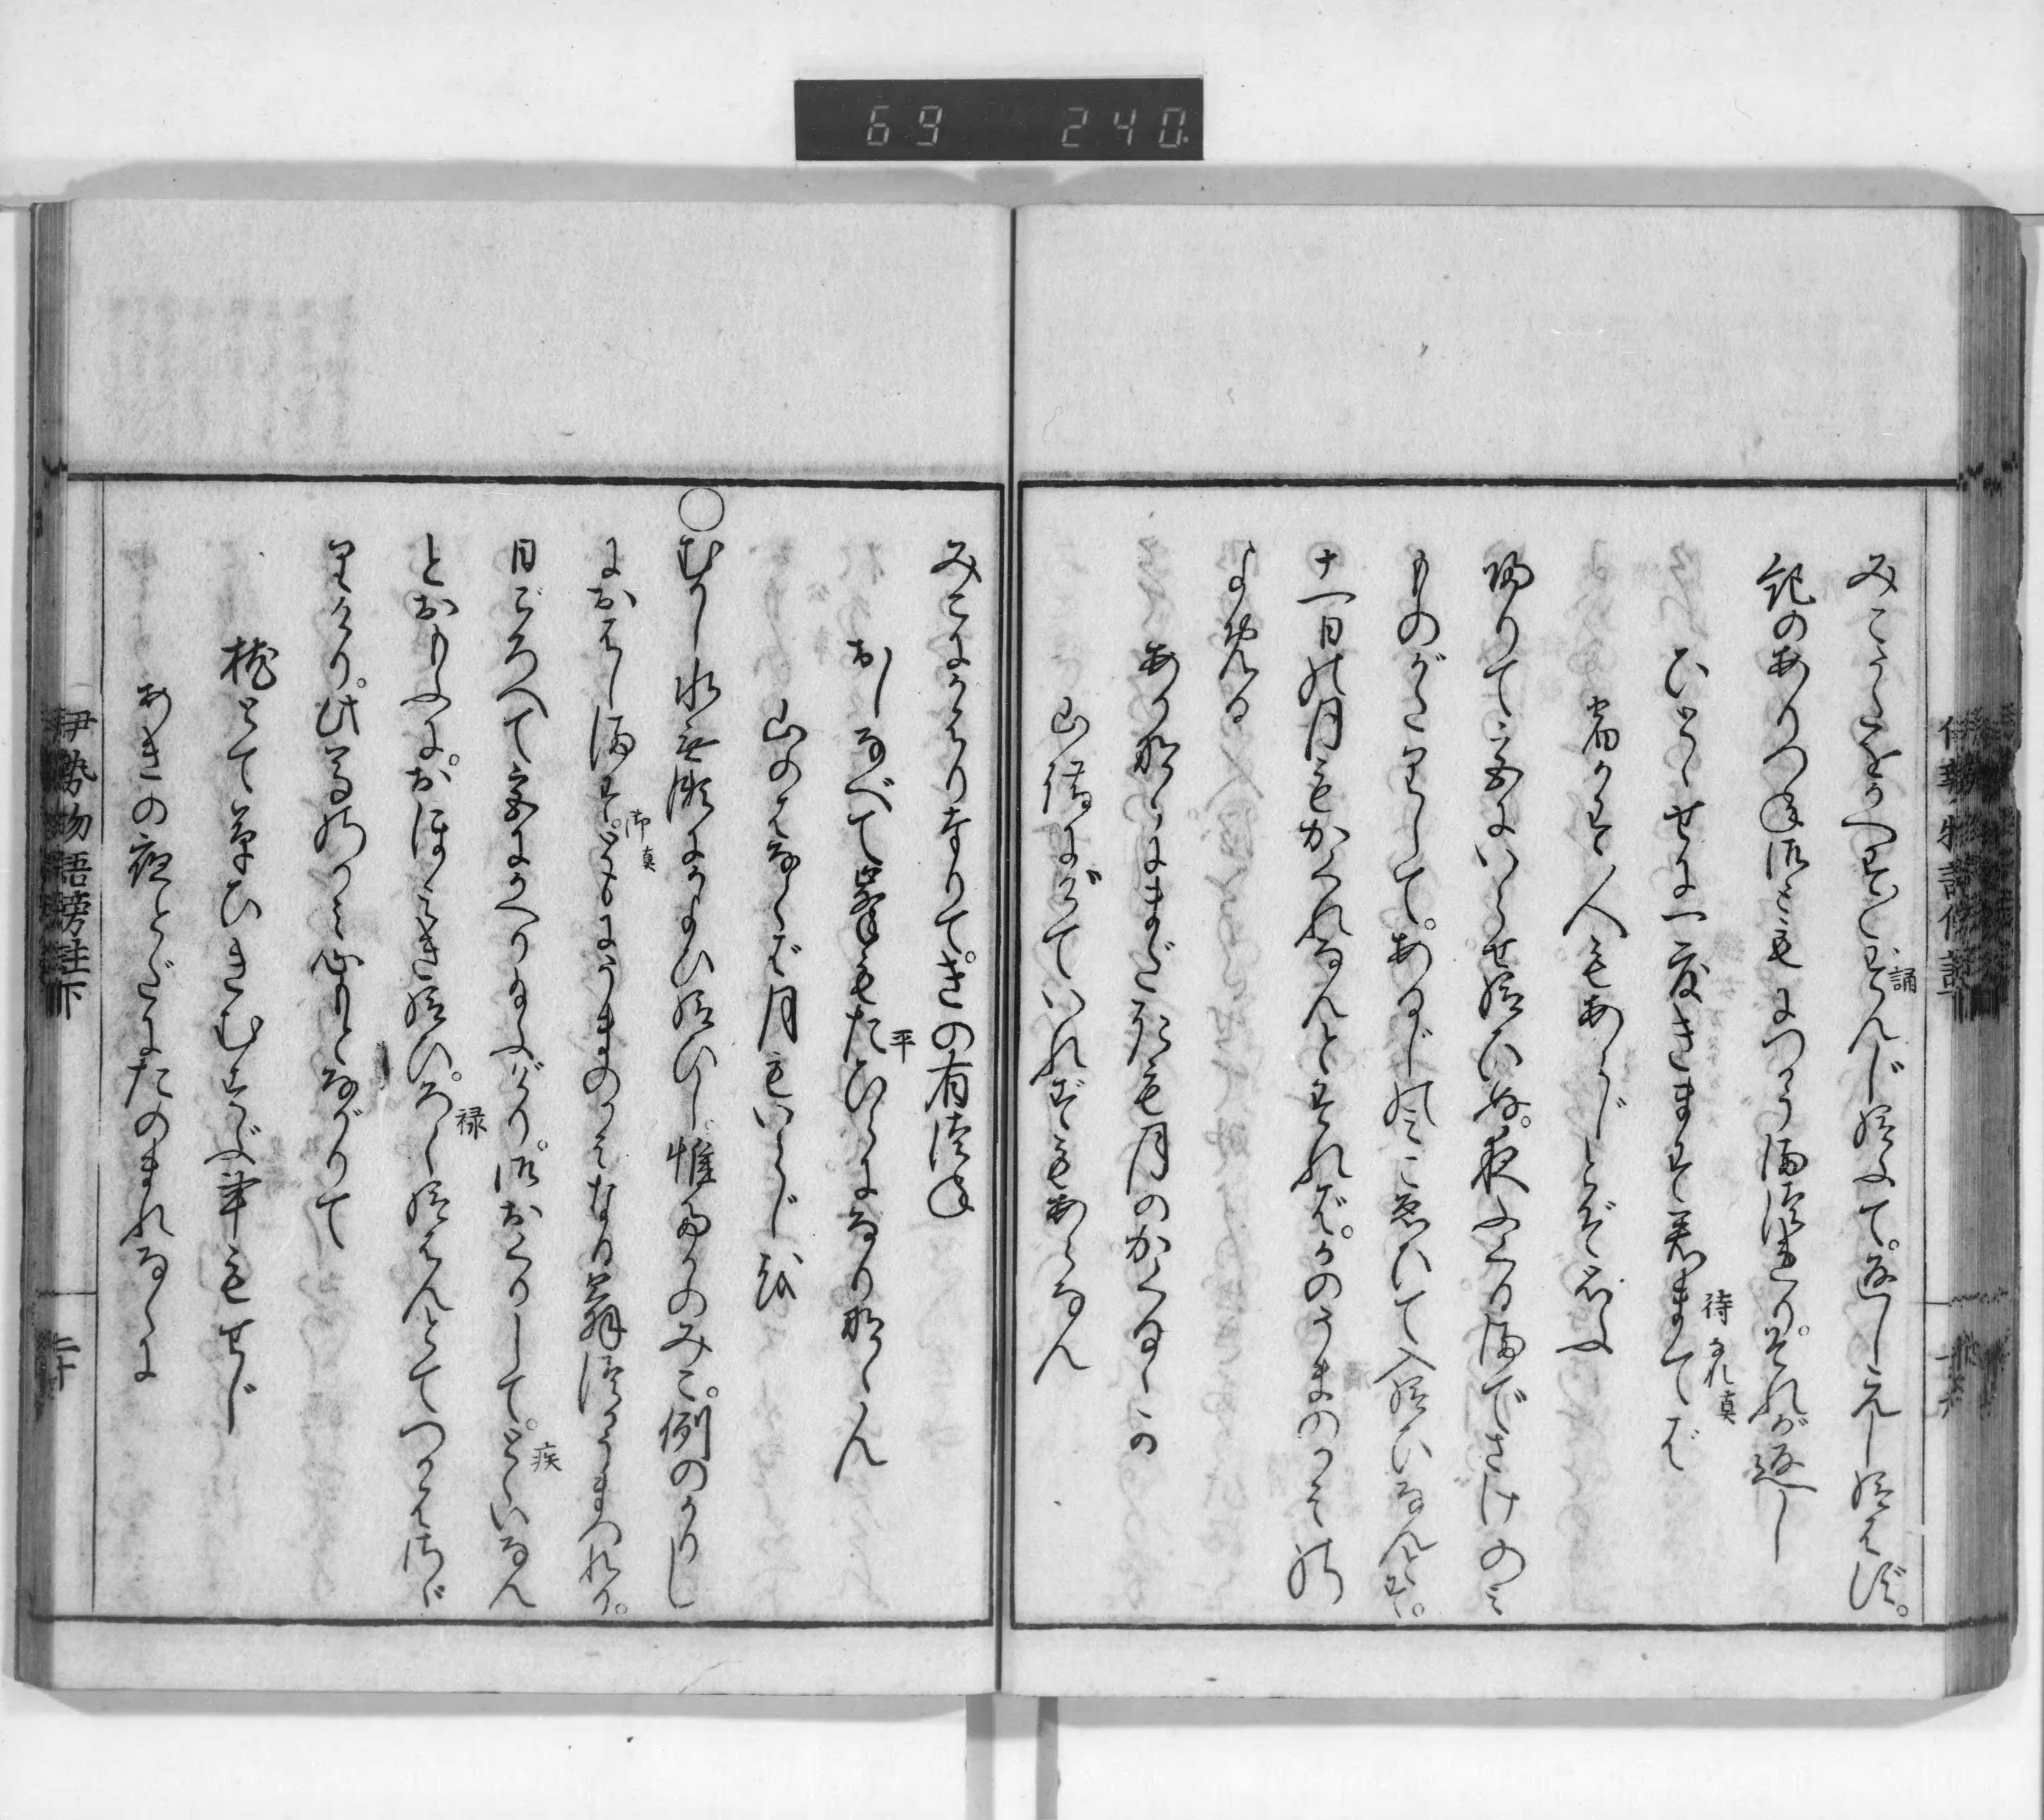 69 240
みこうたをかへすがへすずんじ給ふて。返しえし給はず。
誦
紀のありつね御ともにつかう満つれり。それが返し
ひとゝせに一度きます君まてば
待 又れ真
宿かす人もあらじとぞ思ふ
帰りて宮にいらせ給ひぬ。夜ふくる満でさけのミ
ものがたりして。あるじ乃みこゑひて入給ひなんとす。
十一日の月もかくれなんとすれば。かのうまのかミの
よめる
あかなくにまだきも月のかくるゝか
山端にげていれずもあらなん
みこにかはり奉りて。きの有つね
おしなべて峯もたひらになりなゝん
平
山のはなくば月もいらじを
○むかし水無瀬にかよひ給ひし。惟喬のみこ。例のかりし
におはし満す。ともにうまのかミなる翁つかうまつれり。
御真
日ごろへて宮にかへり給ふけり。御おくりして。とくいなん
疾
とおもふに。おほミき給ひ。ろく給はんとてつかはさゞ
禄
りけり。此うまのかミ心もとながりて
枕とて草ひきむすぶ事もせじ
あきの夜とだにたのまれなくに
伊勢物語傍註下
二十